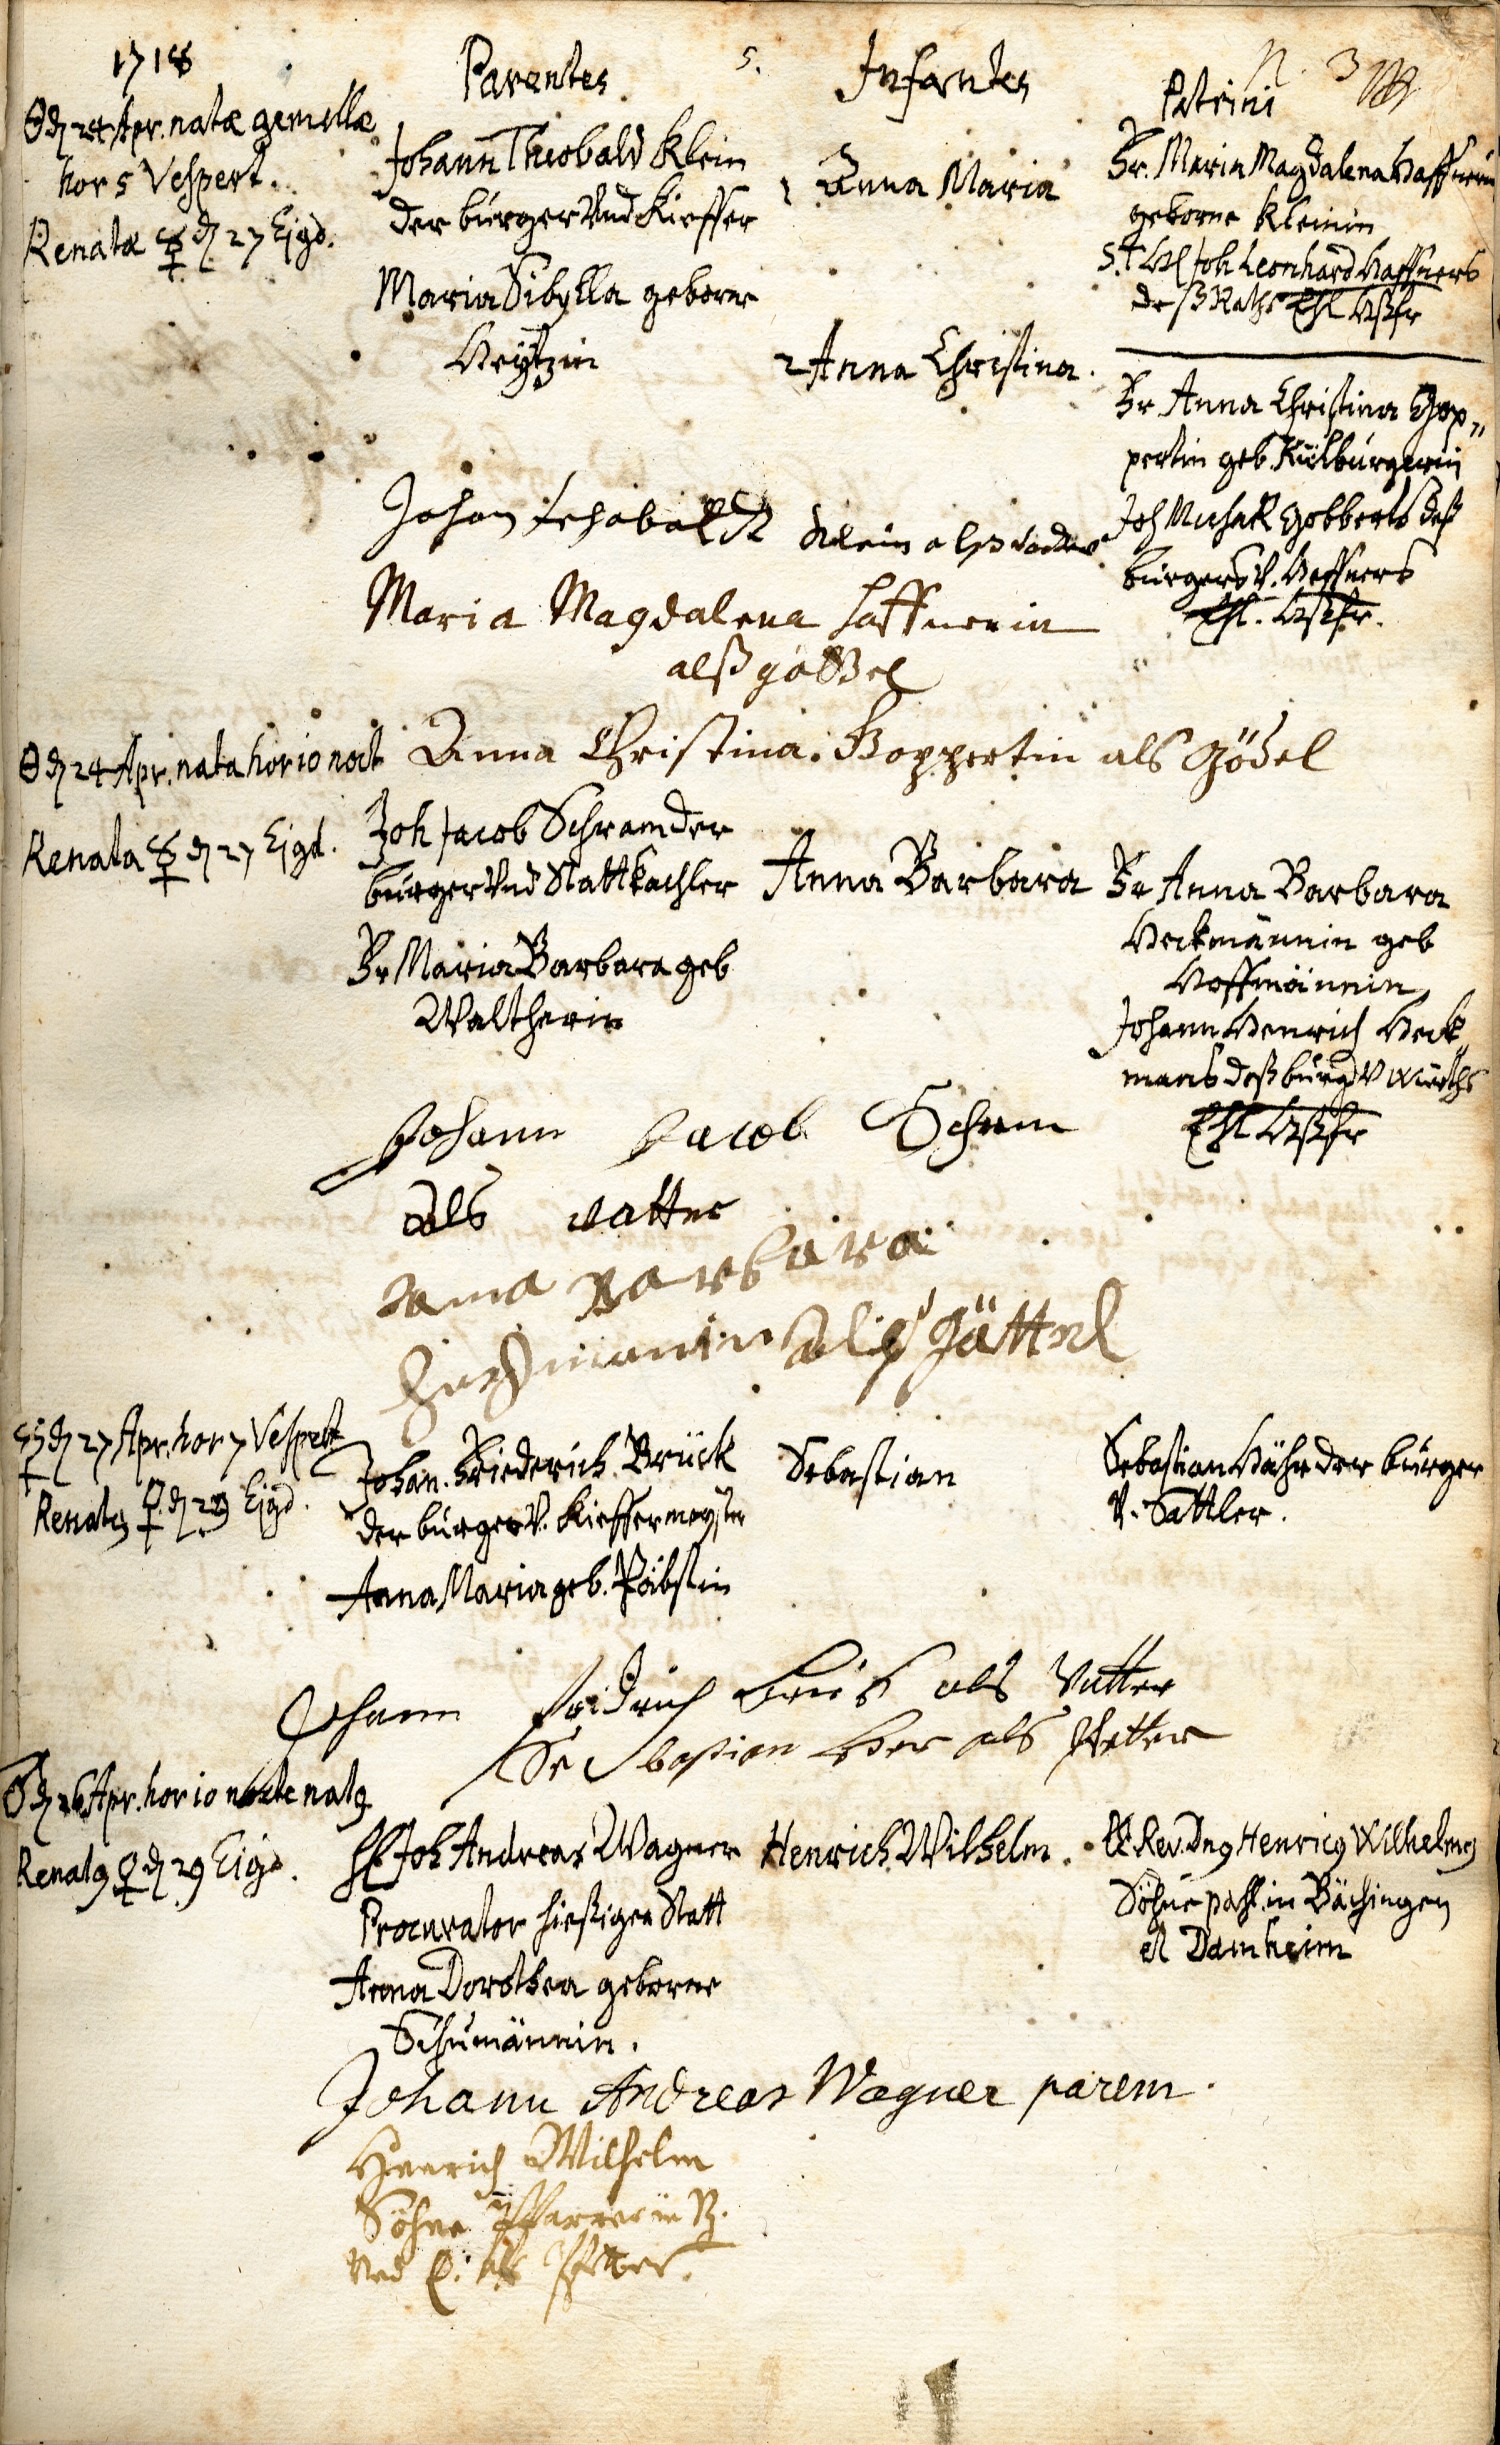 1718
Parentes
5.
Infantes
Patrini
N. 3
☉ d 24 Apr. natæ gemellæ
hor 5 Vespert.
Renatæ ☿ d 27 Ejgd.
Johann Theobald Klein
der burger Vnd Kieffer
Maria Sibylla geborne
1 Anna Maria
2 Anna Christina.
Fr. Maria Magdalena Haffnerin
geborne Kleinin
St. Joh Leonhard Haffners
deß Raths Ehl Haußfr
Fr Anna Christina Gop„
pertin geb. Külburgerin
Joh Michael Gobberts deß
burgers V. Haffners
Ehl. Haußfr.
Klein alß vatter
Maria Magdalena Haffnerin
alß göttel
Anna Christina. Boppertin als Gödel
☉ d 24 Apr. nata hor 10 noct
Renata ☿ d 27 Ejgd.
Joh Jacob Schram der
burger Vnd Stattkachler
Fr Maria Barbara geb
Waltherin
Anna Barbara
Fr Anna Barbara
Heckmännin geb
Hoffmännin
Johann Henrich Heck„
mans deß burg V würths
Ehl Haußfr
Johann Jacob Schram
als vatter
anna barbara
alß Göttel
☿ d 27 Apr. hor 7 Vespert
Renatg ♀ d 29 Ejgd.
Johan. Friederich Brück
der burger V. Kieffermeyster
Anna Maria geb. Päbstin
Sebastian
Sebastian Hähr der burger
V. Sattler.
Johann fridrich brück als Vatter
Sebastian Her als Petter
♂ d 26 Apr. hor 10 nocte natg
Renatg ♀ d 29 Ejgd.
H Joh Andreas Wagner
Procurator hießiger Statt
Anna Dorothea geborne
Schumännin.
Henrich Wilhelm.
Rev. Dng Henricg Wilhelmg
Söhne past. in Bächingen
et Damheim
Johann Andreas Wagner parem.
Henrich Wilhelm
Söhne Pfarrer in B.
Vnd D. als Pfetter.